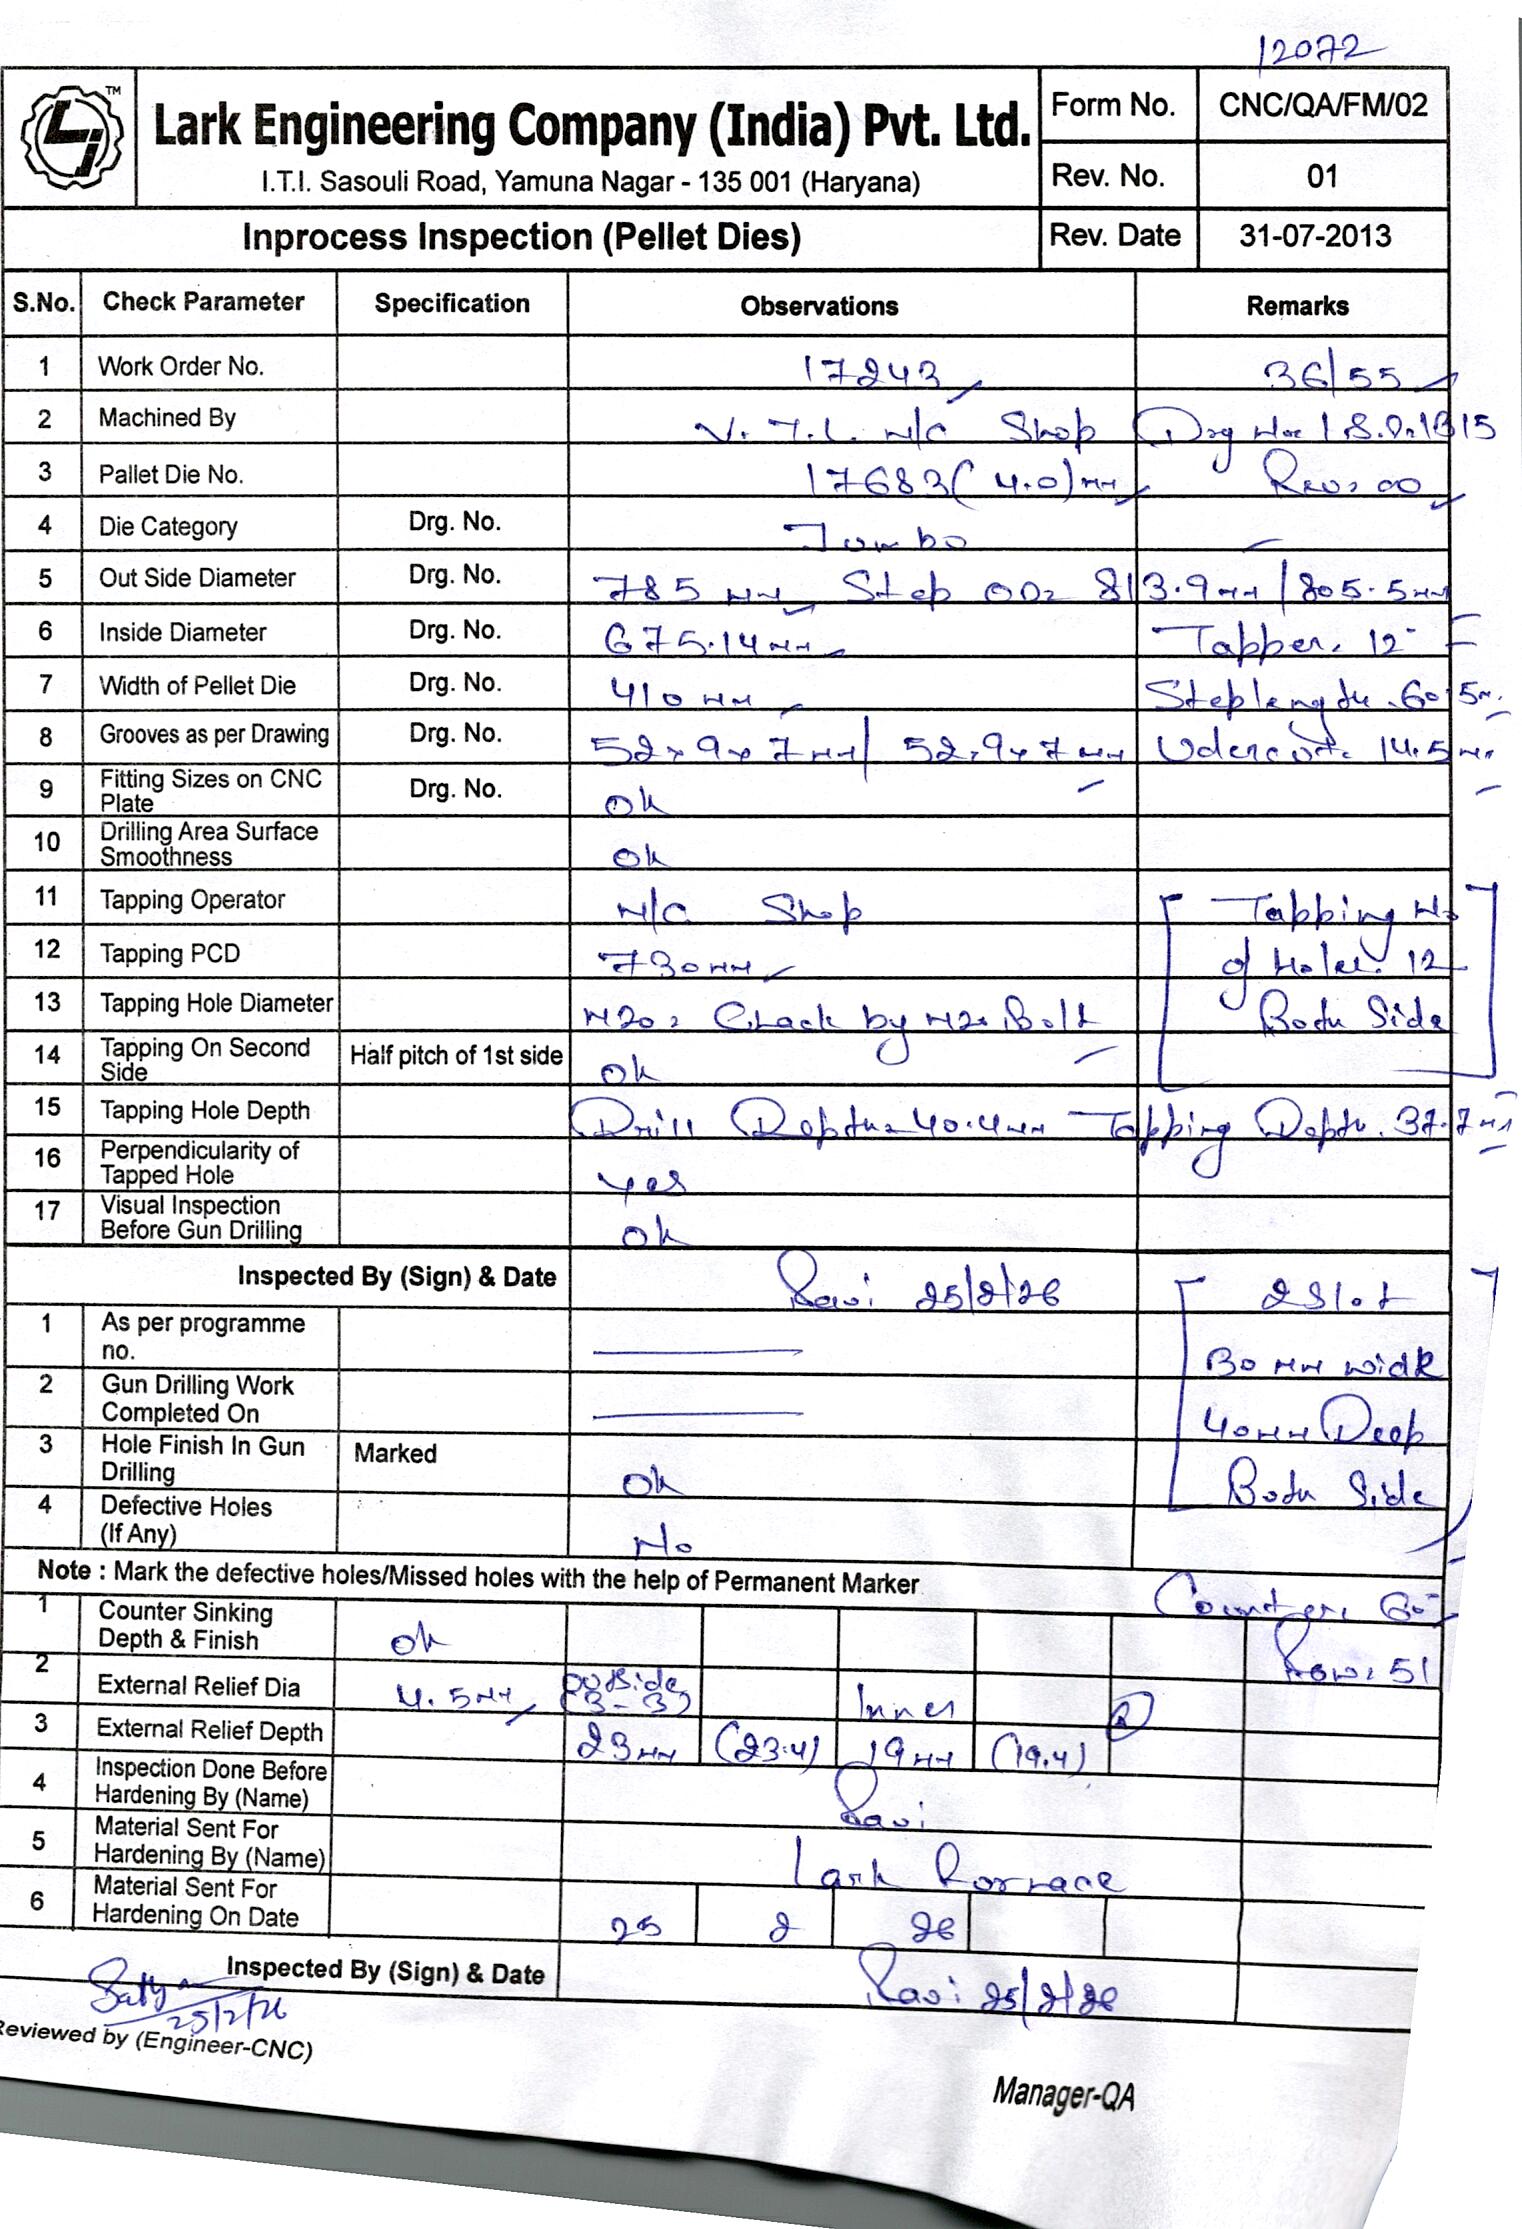 12072
TM
Lark Engineering Company (India) Pvt. Ltd.
I.T.I. Sasouli Road, Yamuna Nagar - 135 001 (Haryana)
Form No. CNC/QA/FM/02
Rev. No. 01
Inprocess Inspection (Pellet Dies) Rev. Date 31-07-2013
S.No. Check Parameter Specification Observations Remarks
1 Work Order No. 17243 36/55
2 Machined By V.T.L. N/C Shop Drg No:
3 Pallet Die No. 17683(4.0)mm Rev: 00
4 Die Category Drg. No. Jumbo
5 Out Side Diameter Drg. No. 785 mm Step OD: 813.9mm/805.5mm
6 Inside Diameter Drg. No. 675.14mm Tapper. 12°
7 Width of Pellet Die Drg. No. 410 mm Step length. 60.5m.
8 Grooves as per Drawing Drg. No. 52x9x7mm/52x9x7mm Udercut. 14.5mm
9 Fitting Sizes on CNC Plate Drg. No. ok
10 Drilling Area Surface Smoothness ok
11 Tapping Operator N/C Shop Tapping No
12 Tapping PCD 730mm of Holes. 12
13 Tapping Hole Diameter M20: Chack by M20 Bolt Both Side
14 Tapping On Second Side Half pitch of 1st side ok
15 Tapping Hole Depth Drill Depth-40.4mm Tapping Depth. 37.7mm
16 Perpendicularity of Tapped Hole yes
17 Visual Inspection Before Gun Drilling ok
Inspected By (Sign) & Date Ravi 25/2/26 2 Slot
1 As per programme no. 30 mm wide
2 Gun Drilling Work Completed On 40mm Deep
3 Hole Finish In Gun Drilling Marked ok Both Side
4 Defective Holes (If Any) No
Note : Mark the defective holes/Missed holes with the help of Permanent Marker Counter: 60°
1 Counter Sinking Depth & Finish ok Row: 51
2 External Relief Dia 4.5mm outside (3-3) Inner
3 External Relief Depth 23mm (23.4) 19mm (19.4)
4 Inspection Done Before Hardening By (Name) Ravi
5 Material Sent For Hardening By (Name) Lark Fornace
6 Material Sent For Hardening On Date 25 2 26
Inspected By (Sign) & Date Ravi 25/2/26
25/2/26
Reviewed by (Engineer-CNC)
Manager-QA